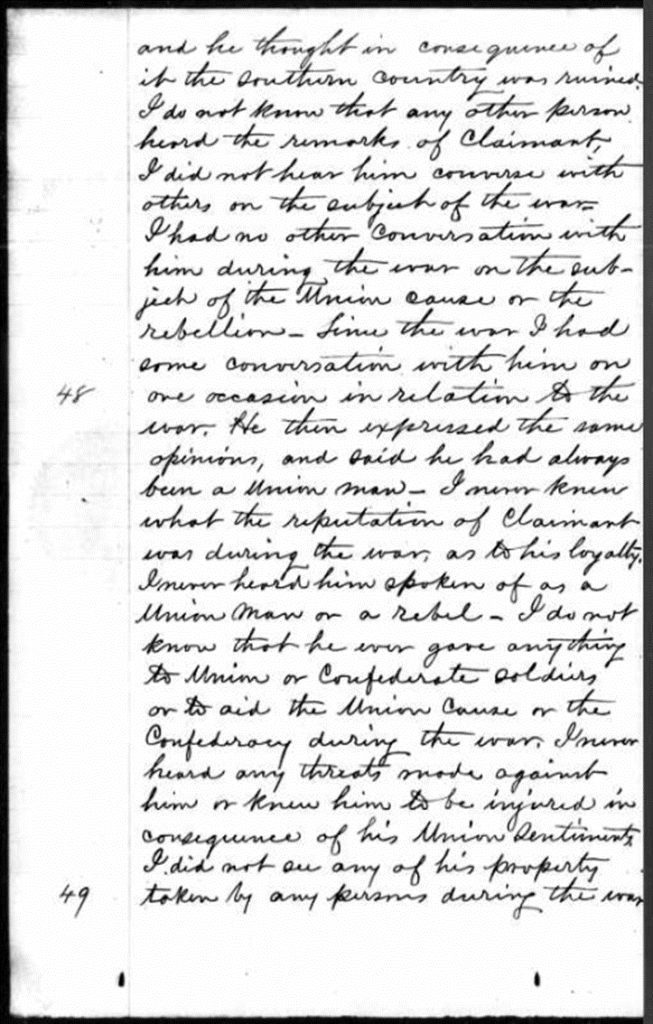 and he thought in consequence of
it the southern country was ruined.
I do not know that any other person
heard the remarks of Claimant,
I did not hear him converse with
others on the subject of the war.
I had no other conversation with
him during the war on the sub-
ject of the Union cause or the
rebellion - Since the war I had
some conversation with him on
48 one occasion in relation to the
war. He then expressed the same
opinions, and said he had always
been a Union man - I never knew
what the reputation of Claimant
was during the war, as to his loyalty.
I never heard him spoken of as a
Union man or a rebel - I do not
know that he ever gave anything
to Union or Confederate soldiers
or to aid the Union cause or the
Confederacy during the war. I never
heard any threats made against
him or knew him to be injured in
consequence of his Union sentiments
I did not see any of his property
49 taken by any persons during the war